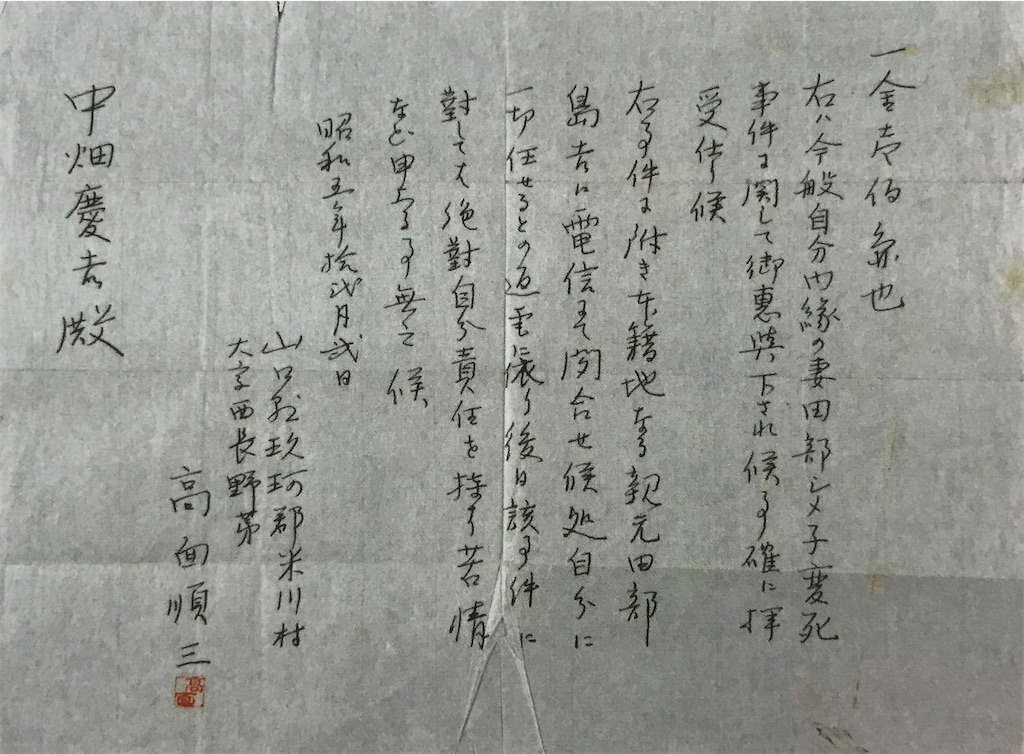 一金壱佰円也
右ハ今般自分内縁の妻田部シメ子変死
事件に関して御惠與下され候事確に拝
受仕り候
右事件に附き本籍地なる親元田部
島吉に電信まて問合せ候処自分に
一切任せるとの返電に依り後日該事件に
對しては絶對自分責任を持ち苦情
など申す事無之候
昭和五年拾弐月弐日
山口縣玖珂郡米川村
大字西長野第
高面順三
中畑慶吉殿